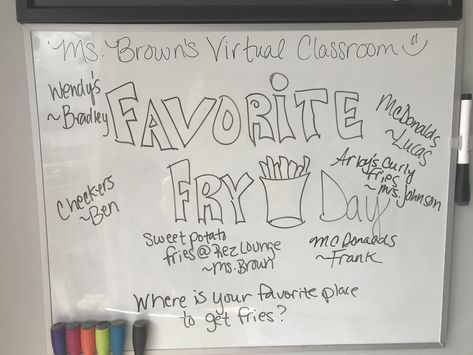 Ms. Brown's Virtual Classroom
Wendy's
~Bradley
FAVORITE
McDonalds
~Lucas
Arby's curly
fries
~Mrs. Johnson
FRY Day
Checkers
~Ben
sweet potato
fries@Rez Lounge
~Ms. Brown
McDonalds
~Frank
Where is your favorite place
to get fries?